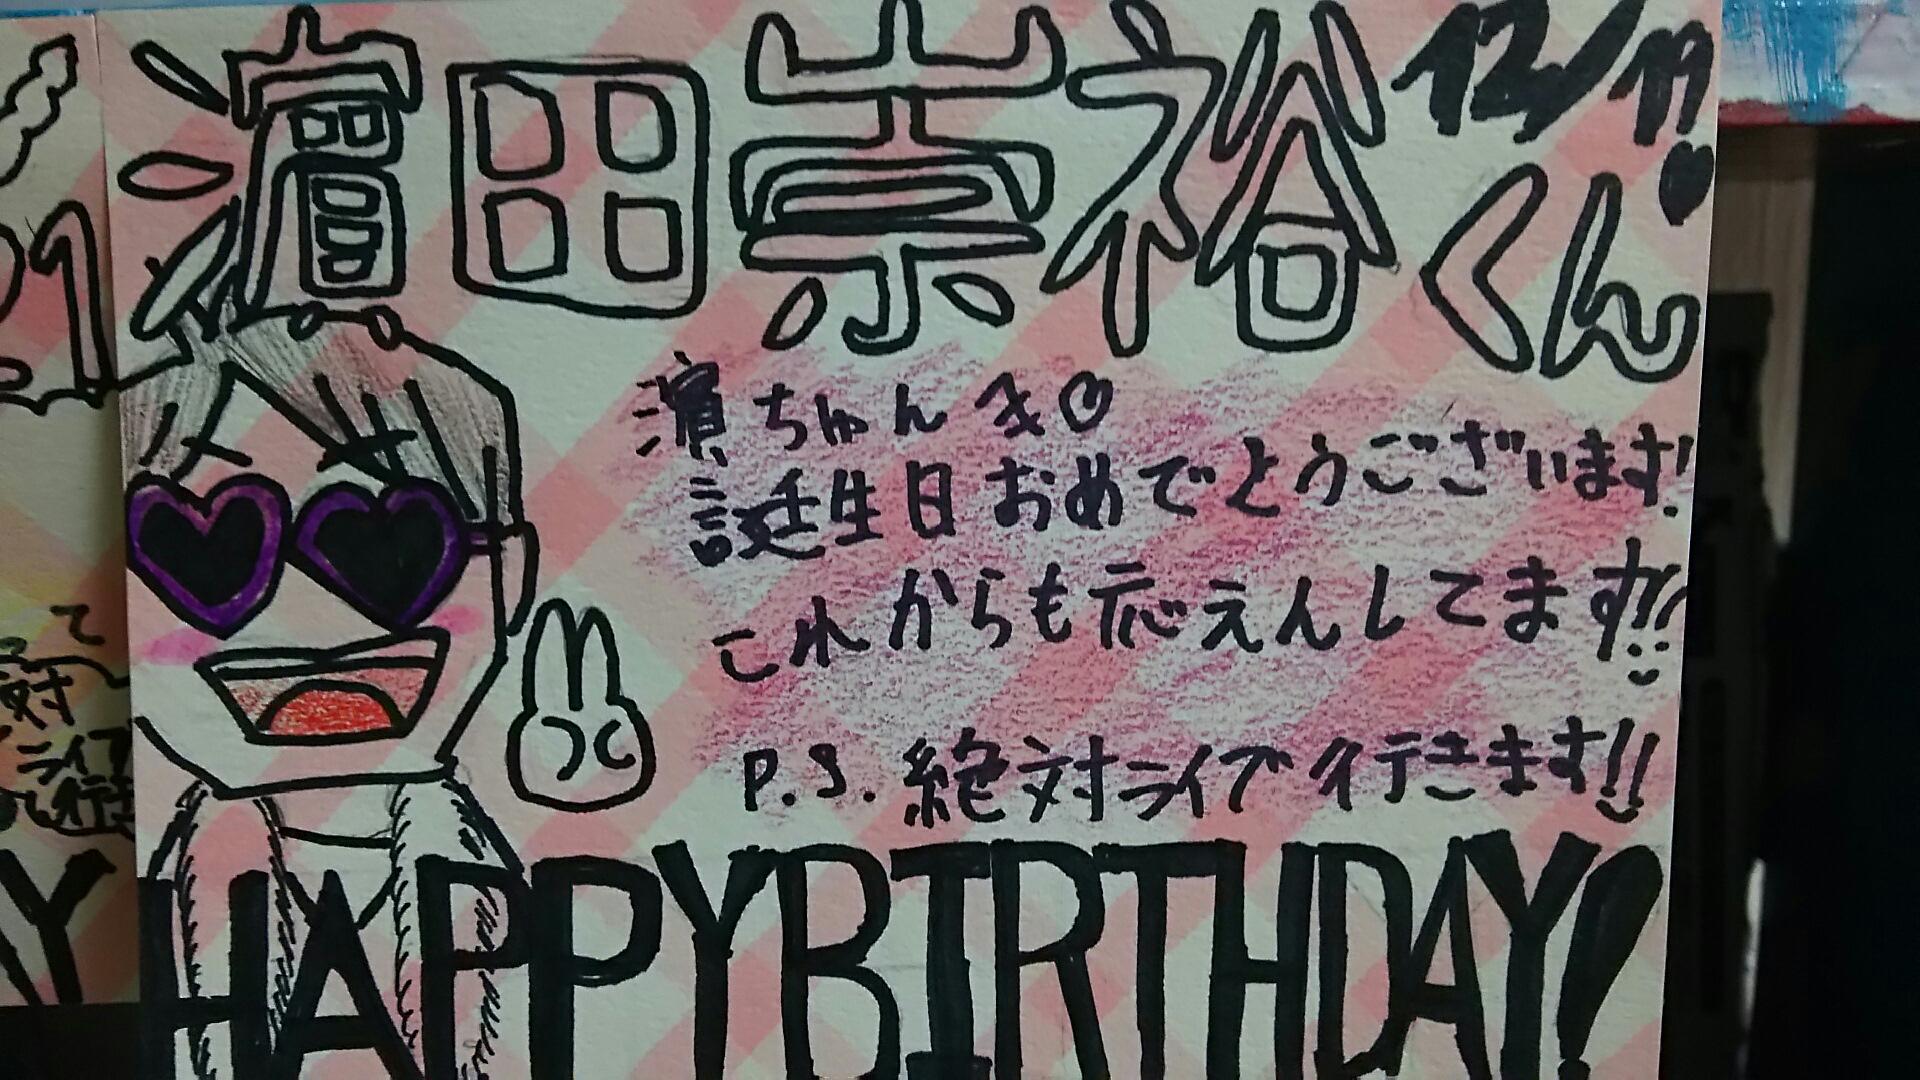 濵田崇裕くん 12/19
濵ちゃんへ
誕生日おめでとうございます!
これからも応えんしてます!!
P.S. 絶対ライブ行きます!!
HAPPY BIRTHDAY!